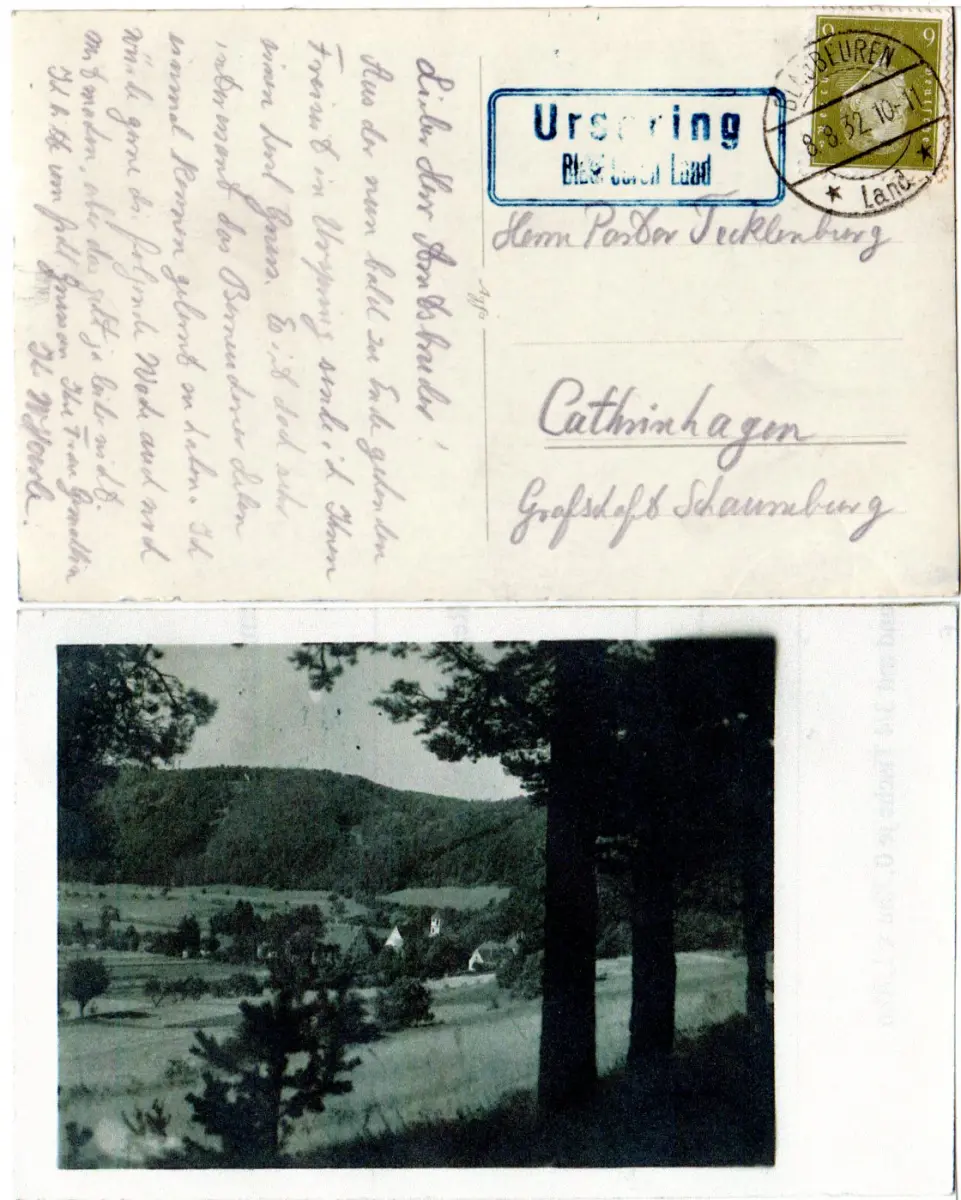 Lieber Herr Amtsbruder!
Aus der nun bald zu Ende gehenden
Freizeit in Urspring sende ich Ihnen
einen herzl. Gruss. Es ist doch sehr
interessant das
einmal kennen gelernt zu haben. Ich
würde gerne die folgende Woche auch noch
mitmachen, aber das geht ja leider nicht.
Ich bitte um frdl. Grüsse an Ihre Frau Gemahlin
Ihr
Urspring
Blaubeuren Land
BLAUBEUREN
8.8.32. 10-11
Land
9 9
Herrn Pastor Tecklenburg
Cathrinhagen
Grafschaft Schaumburg